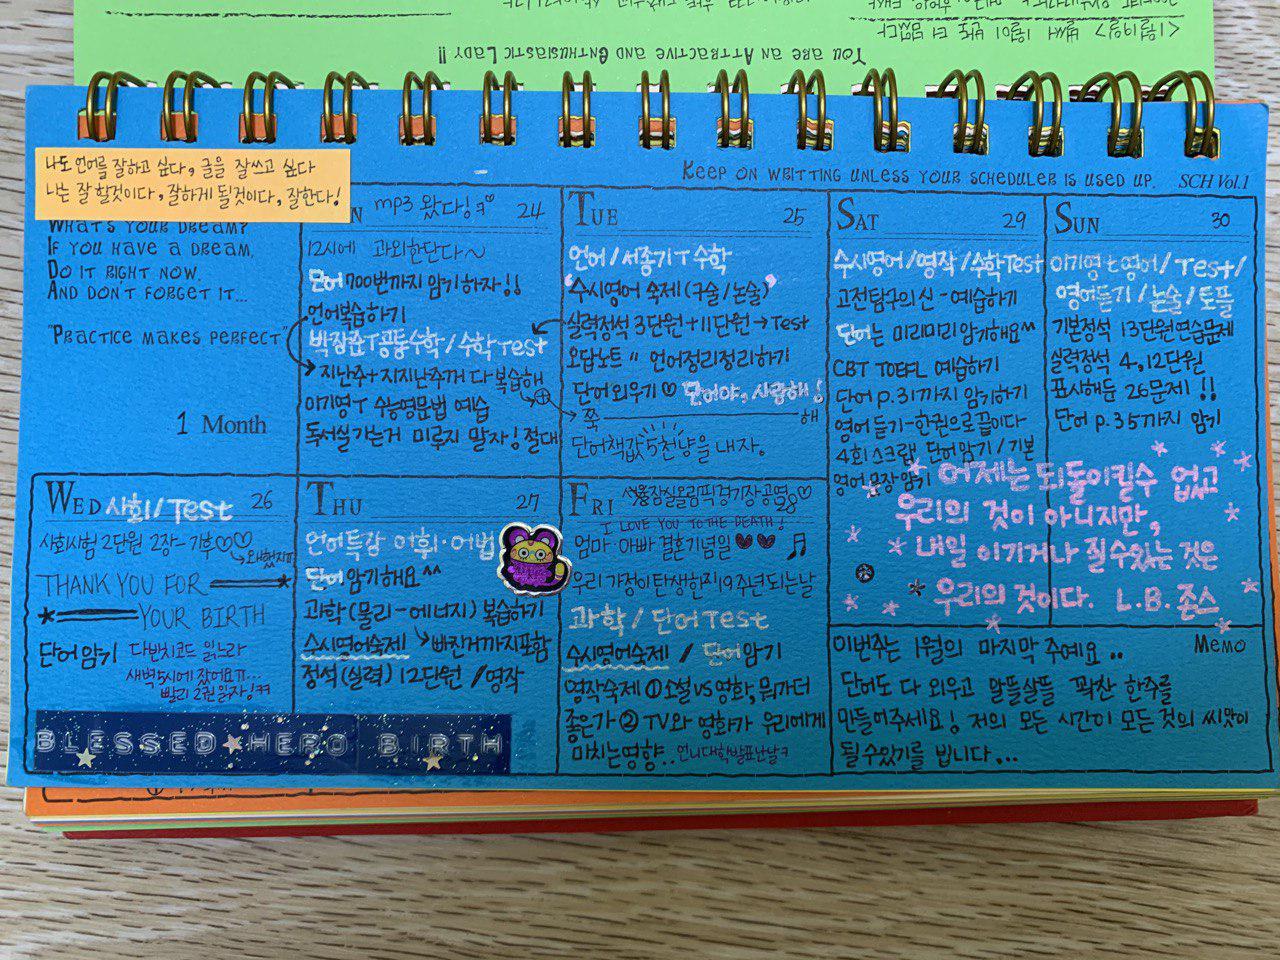 <1월19일> 벌써 1월이 반도 더 넘었다
YOU ARE AN ATTRACTIVE AND ENTHUSIASTIC LADY!!
나도 언어를 잘하고 싶다, 글을 잘쓰고 싶다
나는 잘 할것이다, 잘하게 될것이다, 잘한다!
KEEP ON WRITTING UNLESS YOUR SCHEDULER IS USED UP. SCH Vol.1
WHAT'S YOUR DREAM?
IF YOU HAVE A DREAM,
DO IT RIGHT NOW.
AND DON'T FORGET IT...
"PRACTICE MAKES PERFECT"
1 Month
N mp3 왔다!ㅋ♡ 24
12시에 과외한단다~
단어 700번까지 암기하자!!
언어복습하기
박장준T공통수학/수학Test
지난주+지지난주꺼 다 복습해
이기영T 수능영문법 예습
독서실가는거 미루지 말자! 절대
TUE 25
언어/서종기T 수학
수시영어 숙제(구술/논술)
실력정석 3단원+11단원→Test
오답노트 〃 언어정리정리하기
단어외우기♡ 단어야, 사랑해!
쭉 해
단어책값 5천냥을 내자.
SAT 29
수시영어/영작/수학Test
고전탐구의신-예습하기
단어는 미리미리암기해요^^
CBT TOEFL 예습하기
단어 p.31까지 암기하기
영어듣기-한권으로끝이다
4회 스크랩 단어암기/기본
영어문장암기
SUN 30
이기영t영어/Test/
영어듣기/논술/토플
기본정석 13단원연습문제
실력정석 4,12단원
표시해둔 26문제!!
단어 p.35까지 암기
어제는 되돌이킬수 없고
우리의 것이 아니지만,
내일 이기거나 질수있는 것은
우리의 것이다. L.B.존스
WED 사회/Test 26
사회시험 2단원 2장-기후♡♡
THANK YOU FOR
YOUR BIRTH
단어암기 다빈치코드 읽느라
새벽5시에 잤어요ㅠ...
빨리 2권읽자!ㅋㅋ
BLESSED HERO BIRTH
THU 27
언어특강 어휘·어법
단어암기해요^^
과학(물리-에너지) 복습하기
수시영어숙제→빠진거까지포함
정석(실력) 12단원 /영작
FRI 서울잠실올림픽경기장공연♡ 28
I LOVE YOU TO THE DEATH!
엄마·아빠 결혼기념일♥♥♬
우리가정이탄생한지19주년되는날
과학/단어Test
수시영어숙제 / 단어암기
영작숙제 ①소설vs영화,뭐가더
좋은가 ② TV와 영화가 우리에게
미치는영향.. 언니대학발표난날ㅋ
이번주는 1월의 마지막 주예요.. MEMO
단어도 다 외우고 알뜰살뜰 꽉찬 한주를
만들어주세요! 저의 모든 시간이 모든 것의 씨앗이
될수있기를 빕니다...